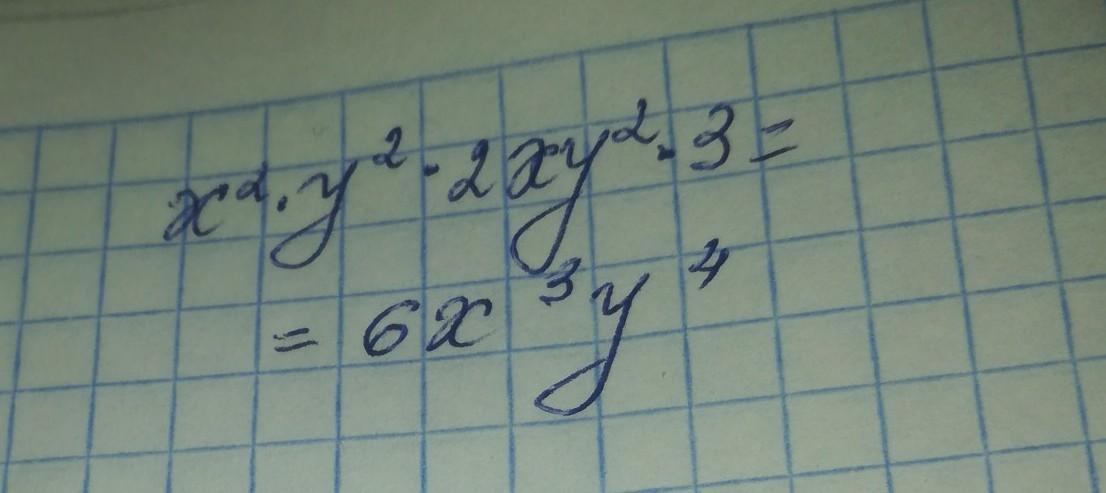 x²·y²·2xy²·3=
= 6x³y⁴